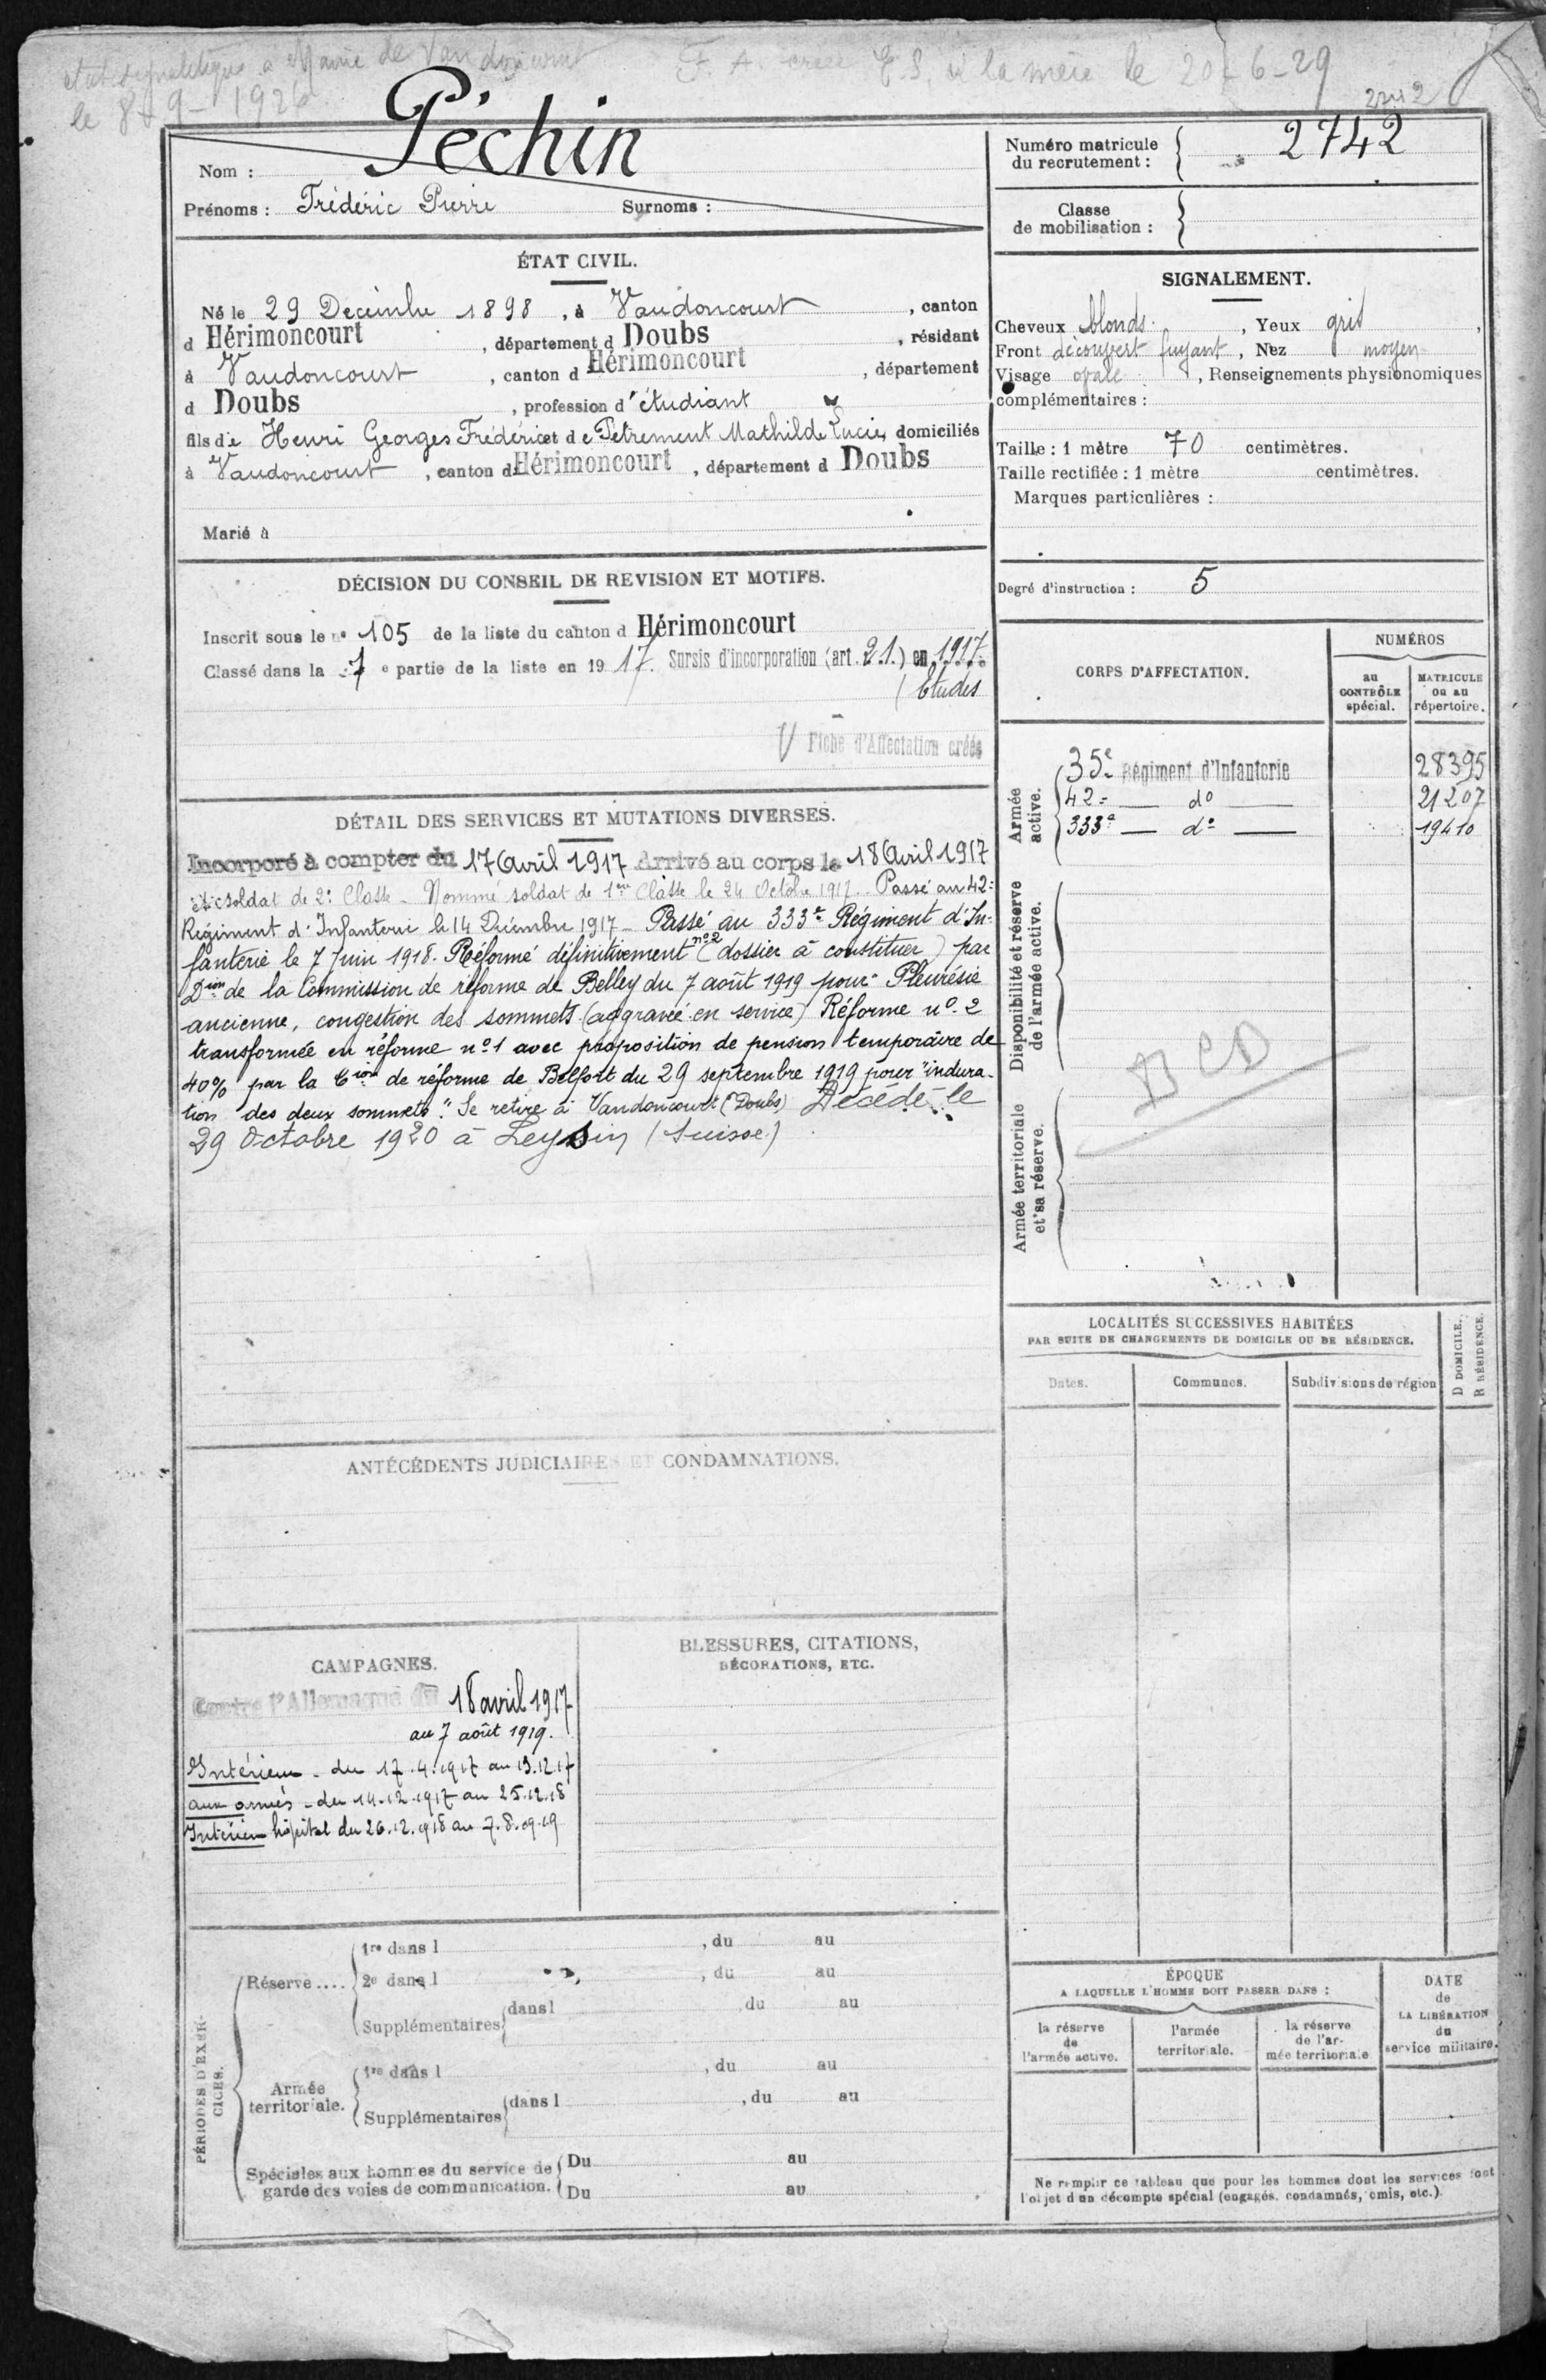 etat signalétique a Mairie de Vandoncourt
le 8-9-1926
F. A. créée E.S. à la mère le 20-6-29
2742
Péchin
Nom :
Prénoms : Frédéric Pierre Surnoms :
Numéro matricule
du recrutement : 2742
Classe
de mobilisation :
ÉTAT CIVIL.
Né le 29 Décembre 1898, à Vandoncourt, canton
d Hérimoncourt, département d Doubs, résidant
à Vandoncourt, canton d Hérimoncourt, département
d Doubs, profession d'étudiant
fils de Henri Georges Frédéric et de Petrement Mathilde Lucie, domiciliés
à Vandoncourt, canton d Hérimoncourt, département d Doubs
Marié à
SIGNALEMENT.
Cheveux blonds, Yeux gris,
Front découvert fuyant, Nez moyen
Visage ovale, Renseignements physionomiques
complémentaires :
Taille : 1 mètre 70 centimètres.
Taille rectifiée : 1 mètre centimètres.
Marques particulières :
Degré d'instruction : 5
DÉCISION DU CONSEIL DE REVISION ET MOTIFS.
Inscrit sous le n° 105 de la liste du canton d Hérimoncourt
Classé dans la 1e partie de la liste en 1917. Sursis d'incorporation (art. 21.) en 1917.
Études
Fiche d'Affectation créée
CORPS D'AFFECTATION.
NUMÉROS
au
CONTRÔLE
spécial.
MATRICULE
ou au
répertoire.
Armée
active.
35e Régiment d'Infanterie 28395
42e — do — 21207
333e — do — 19410
Disponibilité et réserve
de l'armée active.
DCD
Armée territoriale
et sa réserve.
DÉTAIL DES SERVICES ET MUTATIONS DIVERSES.
Incorporé à compter du 17 Avril 1917 Arrivé au corps le 18 Avril 1917
et soldat de 2e Classe - Nommé soldat de 1ère Classe le 24 Octobre 1917. Passé au 42e
Régiment d'Infanterie le 14 Décembre 1917 - Passé au 333e Régiment d'In-
fanterie le 7 Juin 1918. Réformé définitivement n°2 (dossier à constituer) par
Dion de la Commission de réforme de Belley du 7 août 1919 pour " Pleurésie
ancienne, congestion des sommets (aggravée en service) Réforme n°. 2
transformée en réforme n°1 avec proposition de pension temporaire de
40% par la Cion de réforme de Belfort du 29 septembre 1919 pour "indura-
tion des deux sommets." Se retire à Vandoncourt (Doubs) Décédé le
29 Octobre 1920 à Leysin (Suisse)
LOCALITÉS SUCCESSIVES HABITÉES
PAR SUITE DE CHANGEMENTS DE DOMICILE OU DE RÉSIDENCE.
Dates.
Communes.
Subdivisions de région
D DOMICILE.
R RÉSIDENCE.
ANTÉCÉDENTS JUDICIAIRES ET CONDAMNATIONS.
CAMPAGNES.
Contre l'Allemagne du 18 avril 1917
au 7 août 1919.
Intérieur - du 17.4.1917 au 13.12.17
aux armées - du 14.12.1917 au 25.12.18
Intérieur hôpital du 26.12.918 au 7.8.1919
BLESSURES, CITATIONS,
DÉCORATIONS, ETC.
PÉRIODES D'EXER-
CICES.
Réserve....
1re dans l , du au
2e dans l , du au
Supplémentaires dans l du au
Armée
territoriale.
1re dans l , du au
Supplémentaires dans l , du au
Spéciales aux hommes du service de
garde des voies de communication.
Du au
Du au
ÉPOQUE
A LAQUELLE L'HOMME DOIT PASSER DANS :
la réserve
de
l'armée active.
l'armée
territoriale.
la réserve
de l'ar-
mée territoriale
DATE
de
LA LIBÉRATION
du
service militaire.
Ne remplir ce tableau que pour les hommes dont les services font
l'objet d'un décompte spécial (engagés, condamnés, omis, etc.).